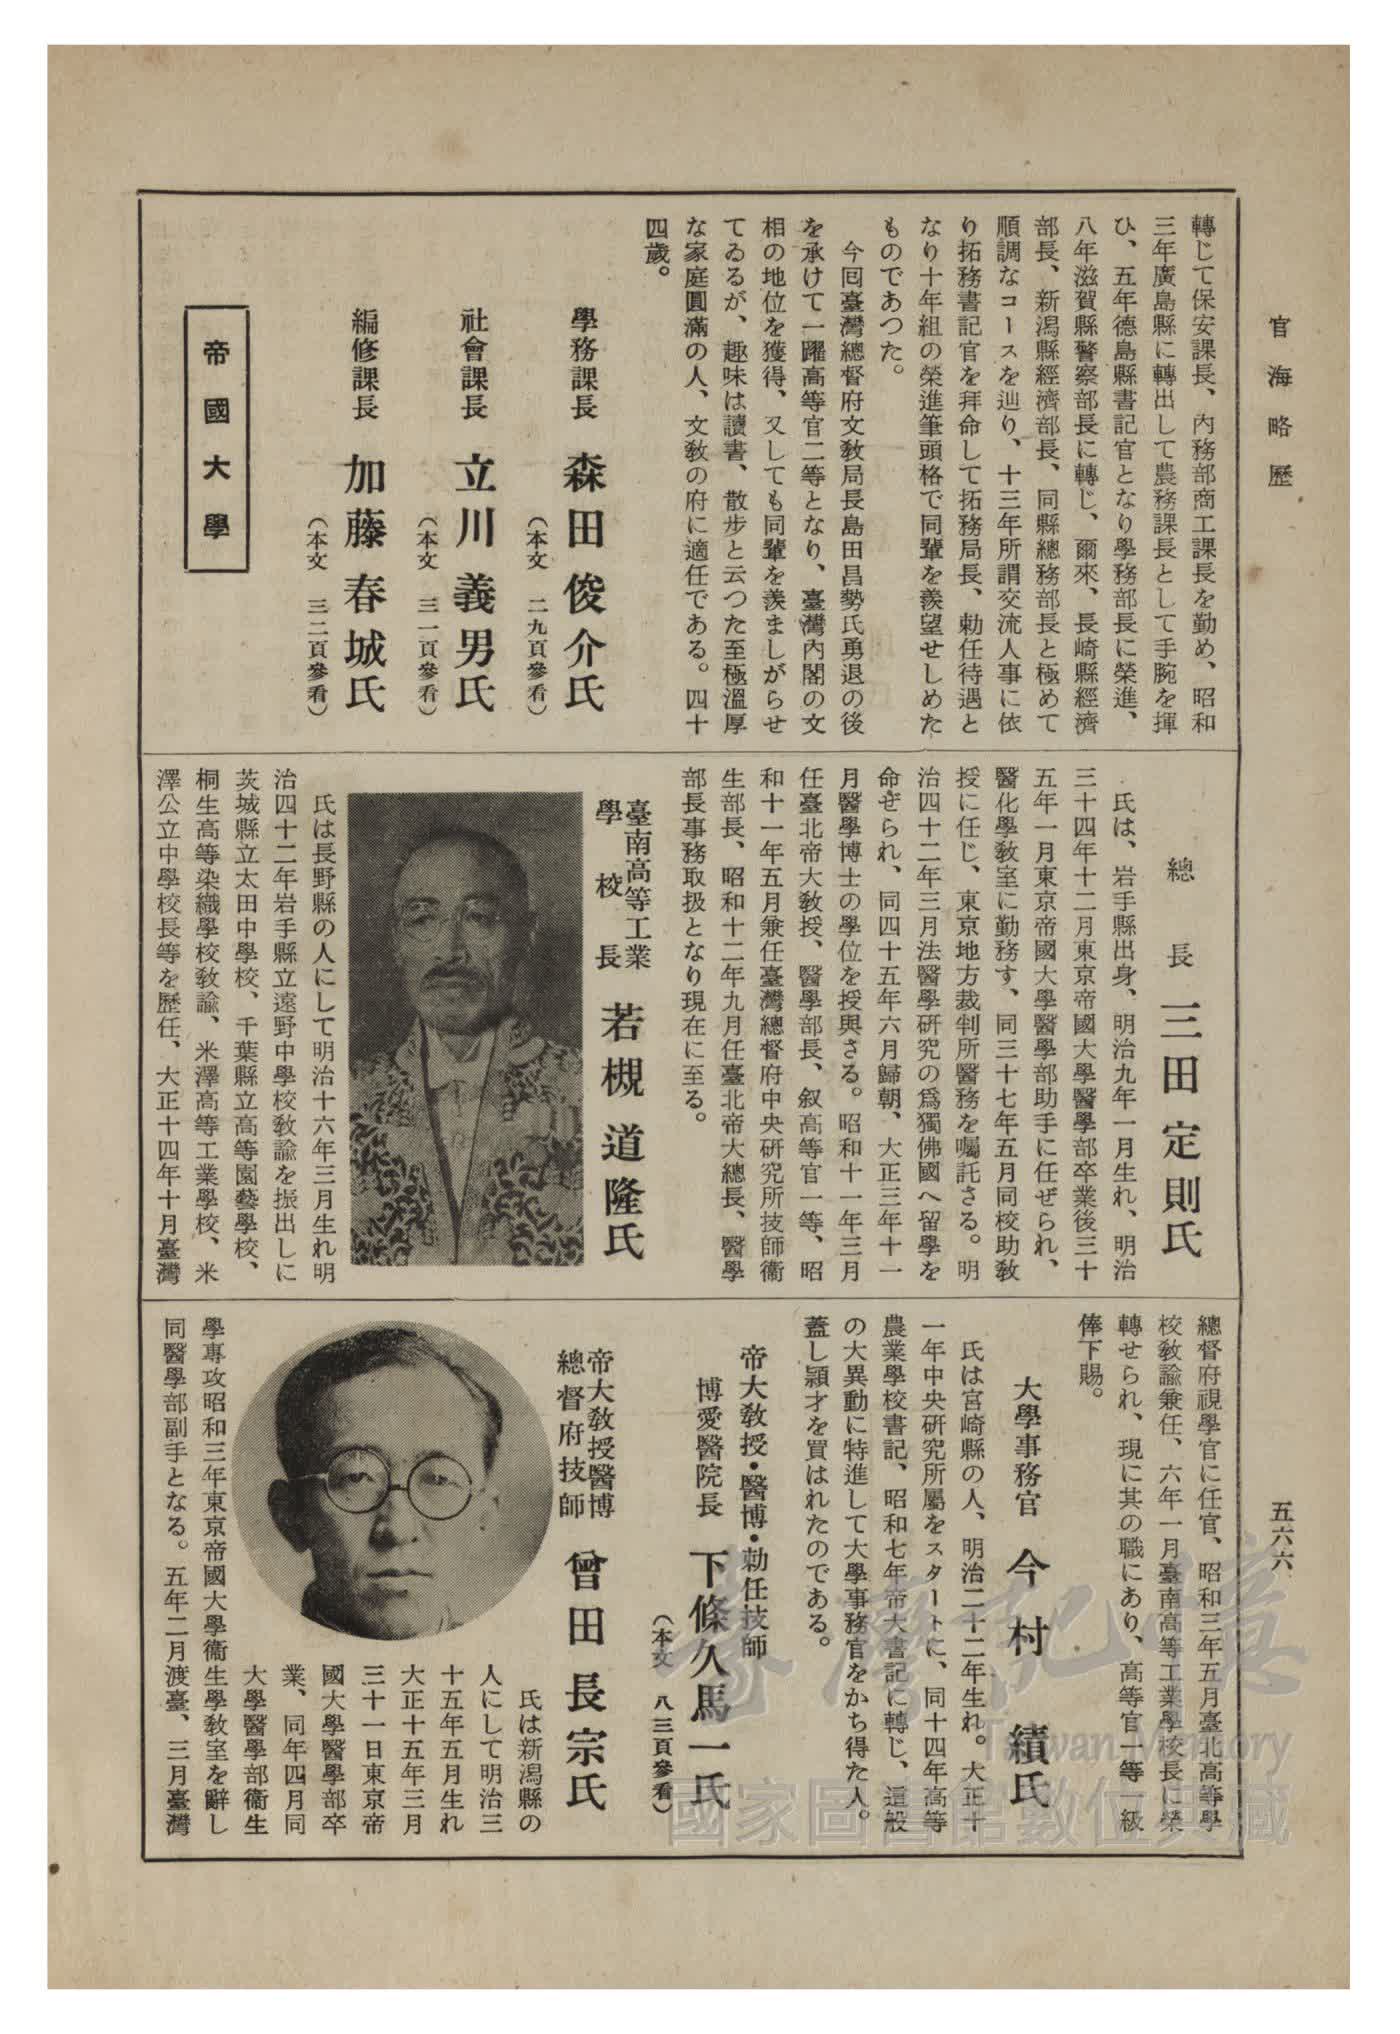 官海略歷
五六六
轉じて保安課長、內務部商工課長を勤め、昭和
三年廣島縣に轉出して農務課長として手腕を揮
ひ、五年德島縣書記官となり學務部長に榮進、
八年滋賀縣警察部長に轉じ、爾來、長崎縣經濟
部長、新潟縣經濟部長、同縣總務部長と極めて
順調なコースを辿り、十三年所謂交流人事に依
り拓務書記官を拜命して拓務局長、勅任待遇と
なり十年組の榮進筆頭格で同輩を羨望せしめた
ものであつた。
今囘臺灣總督府文敎局長島田昌勢氏勇退の後
を承けて一躍高等官二等となり、臺灣內閣の文
相の地位を獲得、又しても同輩を羨ましがらせ
てゐるが、趣味は讀書、散步と云つた至極溫厚
な家庭圓滿の人、文敎の府に適任である。四十
四歲。
學務課長 森田俊介氏
(本文 二九頁參看)
社會課長 立川義男氏
(本文 三一頁參看)
編修課長 加藤春城氏
(本文 三二頁參看)
帝國大學
總長 三田定則氏
氏は、岩手縣出身、明治九年一月生れ、明治
三十四年十二月東京帝國大學醫學部卒業後三十
五年一月東京帝國大學醫學部助手に任ぜられ、
醫化學敎室に勤務す、同三十七年五月同校助敎
授に任じ、東京地方裁判所醫務を囑託さる。明
治四十二年三月法醫學硏究の爲獨佛國へ留學を
命ぜられ、同四十五年六月歸朝、大正三年十一
月醫學博士の學位を授與さる。昭和十一年三月
任臺北帝大敎授、醫學部長、叙高等官一等、昭
和十一年五月兼任臺灣總督府中央硏究所技師衞
生部長、昭和十二年九月任臺北帝大總長、醫學
部長事務取扱となり現在に至る。
臺南高等工業
學校長 若槻道隆氏
氏は長野縣の人にして明治十六年三月生れ明
治四十二年岩手縣立遠野中學校敎諭を振出しに
茨城縣立太田中學校、千葉縣立高等園藝學校、
桐生高等染織學校敎諭、米澤高等工業學校、米
澤公立中學校長等を歷任、大正十四年十月臺灣
總督府視學官に任官、昭和三年五月臺北高等學
校敎諭兼任、六年一月臺南高等工業學校長に榮
轉せられ、現に其の職にあり、高等官一等一級
俸下賜。
大學事務官 今村 績氏
氏は宮崎縣の人、明治二十二年生れ。大正十
一年中央硏究所屬をスタートに、同十四年高等
農業學校書記、昭和七年帝大書記に轉じ、這般
の大異動に特進して大學事務官をかち得た人。
蓋し穎才を買はれたのである。
帝大敎授・醫博・勅任技師
博愛醫院長 下條久馬一氏
(本文 八三頁參看)
帝大敎授醫博
總督府技師 曾田長宗氏
氏は新潟縣の
人にして明治三
十五年五月生れ
大正十五年三月
三十一日東京帝
國大學醫學部卒
業、同年四月同
大學醫學部衞生
學專攻昭和三年東京帝國大學衞生學敎室を辭し
同醫學部副手となる。五年二月渡臺、三月臺灣
臺灣記憶
Taiwan Memory
國家圖書館數位典藏